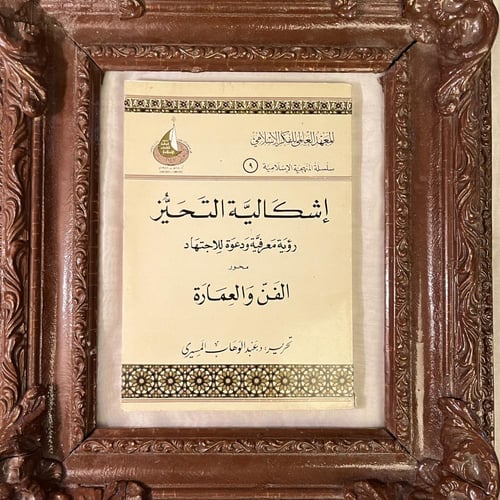 المعهد العالمي للفكر الإسلامي
سلسلة المنهجية الإسلامية ٩
إشكالية التحيُّز
رؤية معرفيَّة ودعوة للاجتهاد
محور
الفنّ والعِمَارة
تحرير: د. عبد الوهاب المسيري